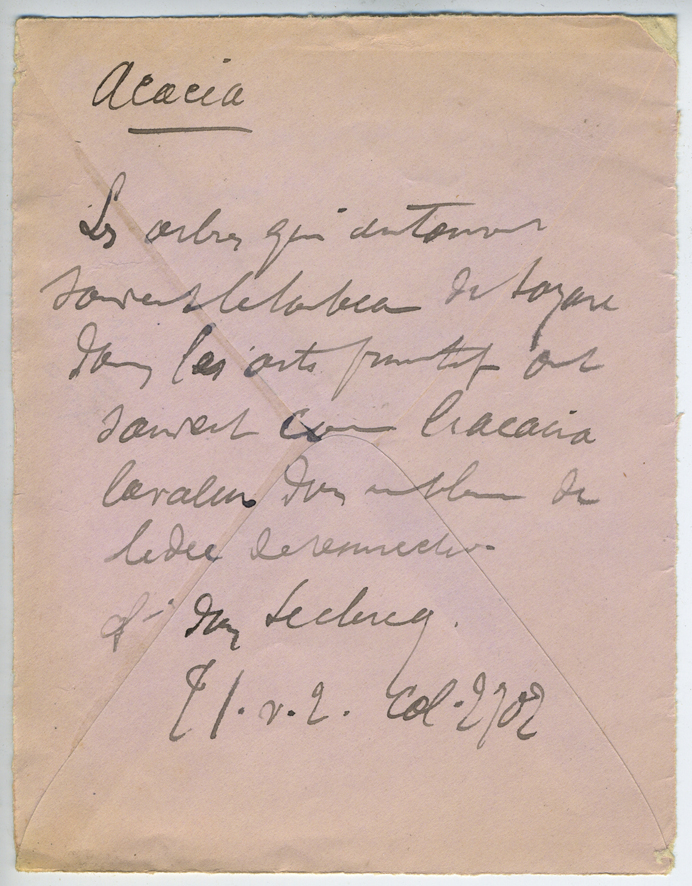 Acacia
Les arbres qui entourent
souvent le tombeau de Lazare
dans les arts primitifs ont
souvent comme l'acacia
la valeur d'un emblème de
l'idée de résurrection
cf - Dom Leclercq.
T 1. v. 2. Col. 2702